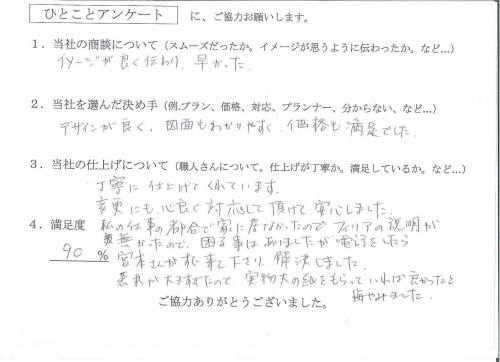 ひとことアンケート に、ご協力お願いします。
1．当社の商談について（スムーズだったか。イメージが思うように伝わったか。など…）
イメージが良く伝わり、早かった。
2．当社を選んだ決め手（例.プラン、価格、対応、プランナー、分からない、など…）
デザインが良く、図面もわかりやすく、価格も満足でした。
3．当社の仕上げについて（職人さんについて。仕上げが丁寧か。満足しているか。など…）
丁寧に仕上げてくれています。
変更にも心良く対応して頂けて安心しました。
4．満足度 私の仕事の都合で家に居なかったので の説明が
90 % 無かったので、困る事はありましたが電話をしたら
宮本さんがすぐ来て下さり、解決しました。
表札が大きすぎたので 実物大の紙をもらっていれば良かったと
悔やみました。
ご協力ありがとうございました。